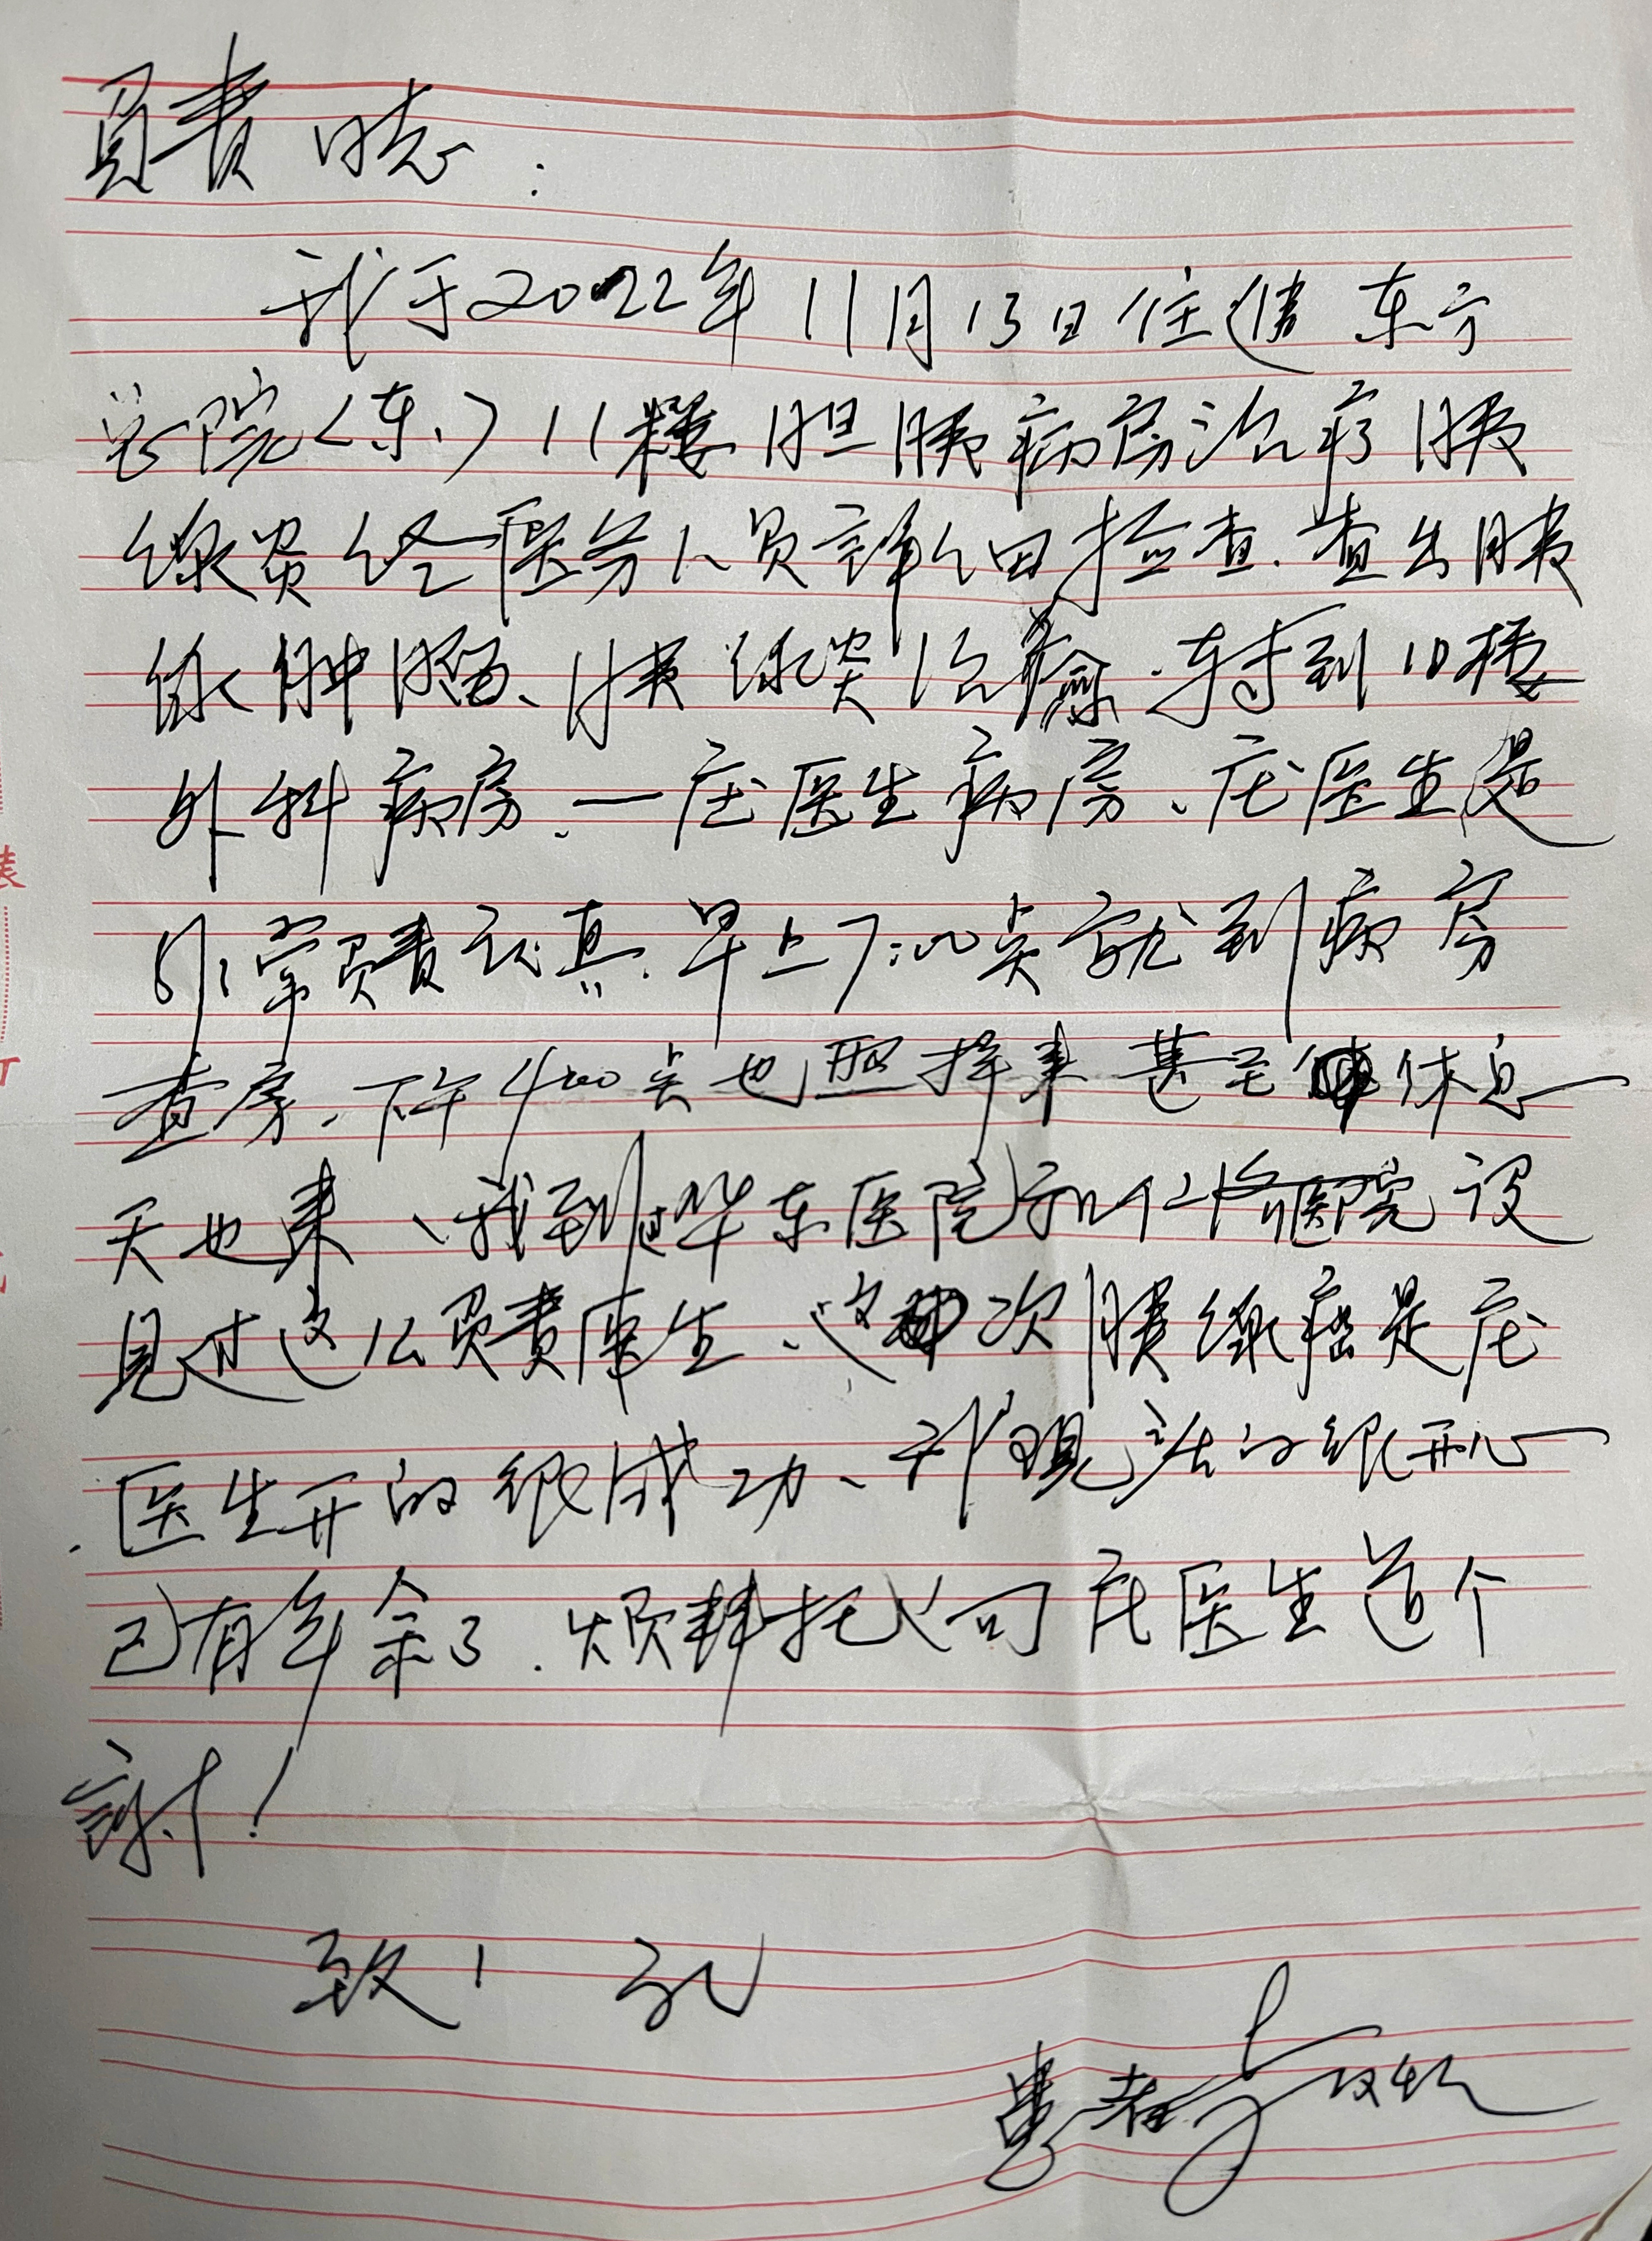 负责同志:
我于2022年11月13日住进东方
总院(东)11楼胆胰病房治疗胰
腺炎经医务人员详细检查.查出胰
腺肿瘤、胰腺炎治癒.转到10楼
外科病房、一庄医生病房、庄医生是
非常负责认真.早上7:00点就到病房
查房、下午4:00点也照样来甚至休息
天也来、我到过华东医院和仁济医院没
见过这么负责医生、这次胰腺癌是庄
医生开的很成功、我现活的很开心
已有年余了.烦拜托向庄医生道个
谢!
致 礼
患者